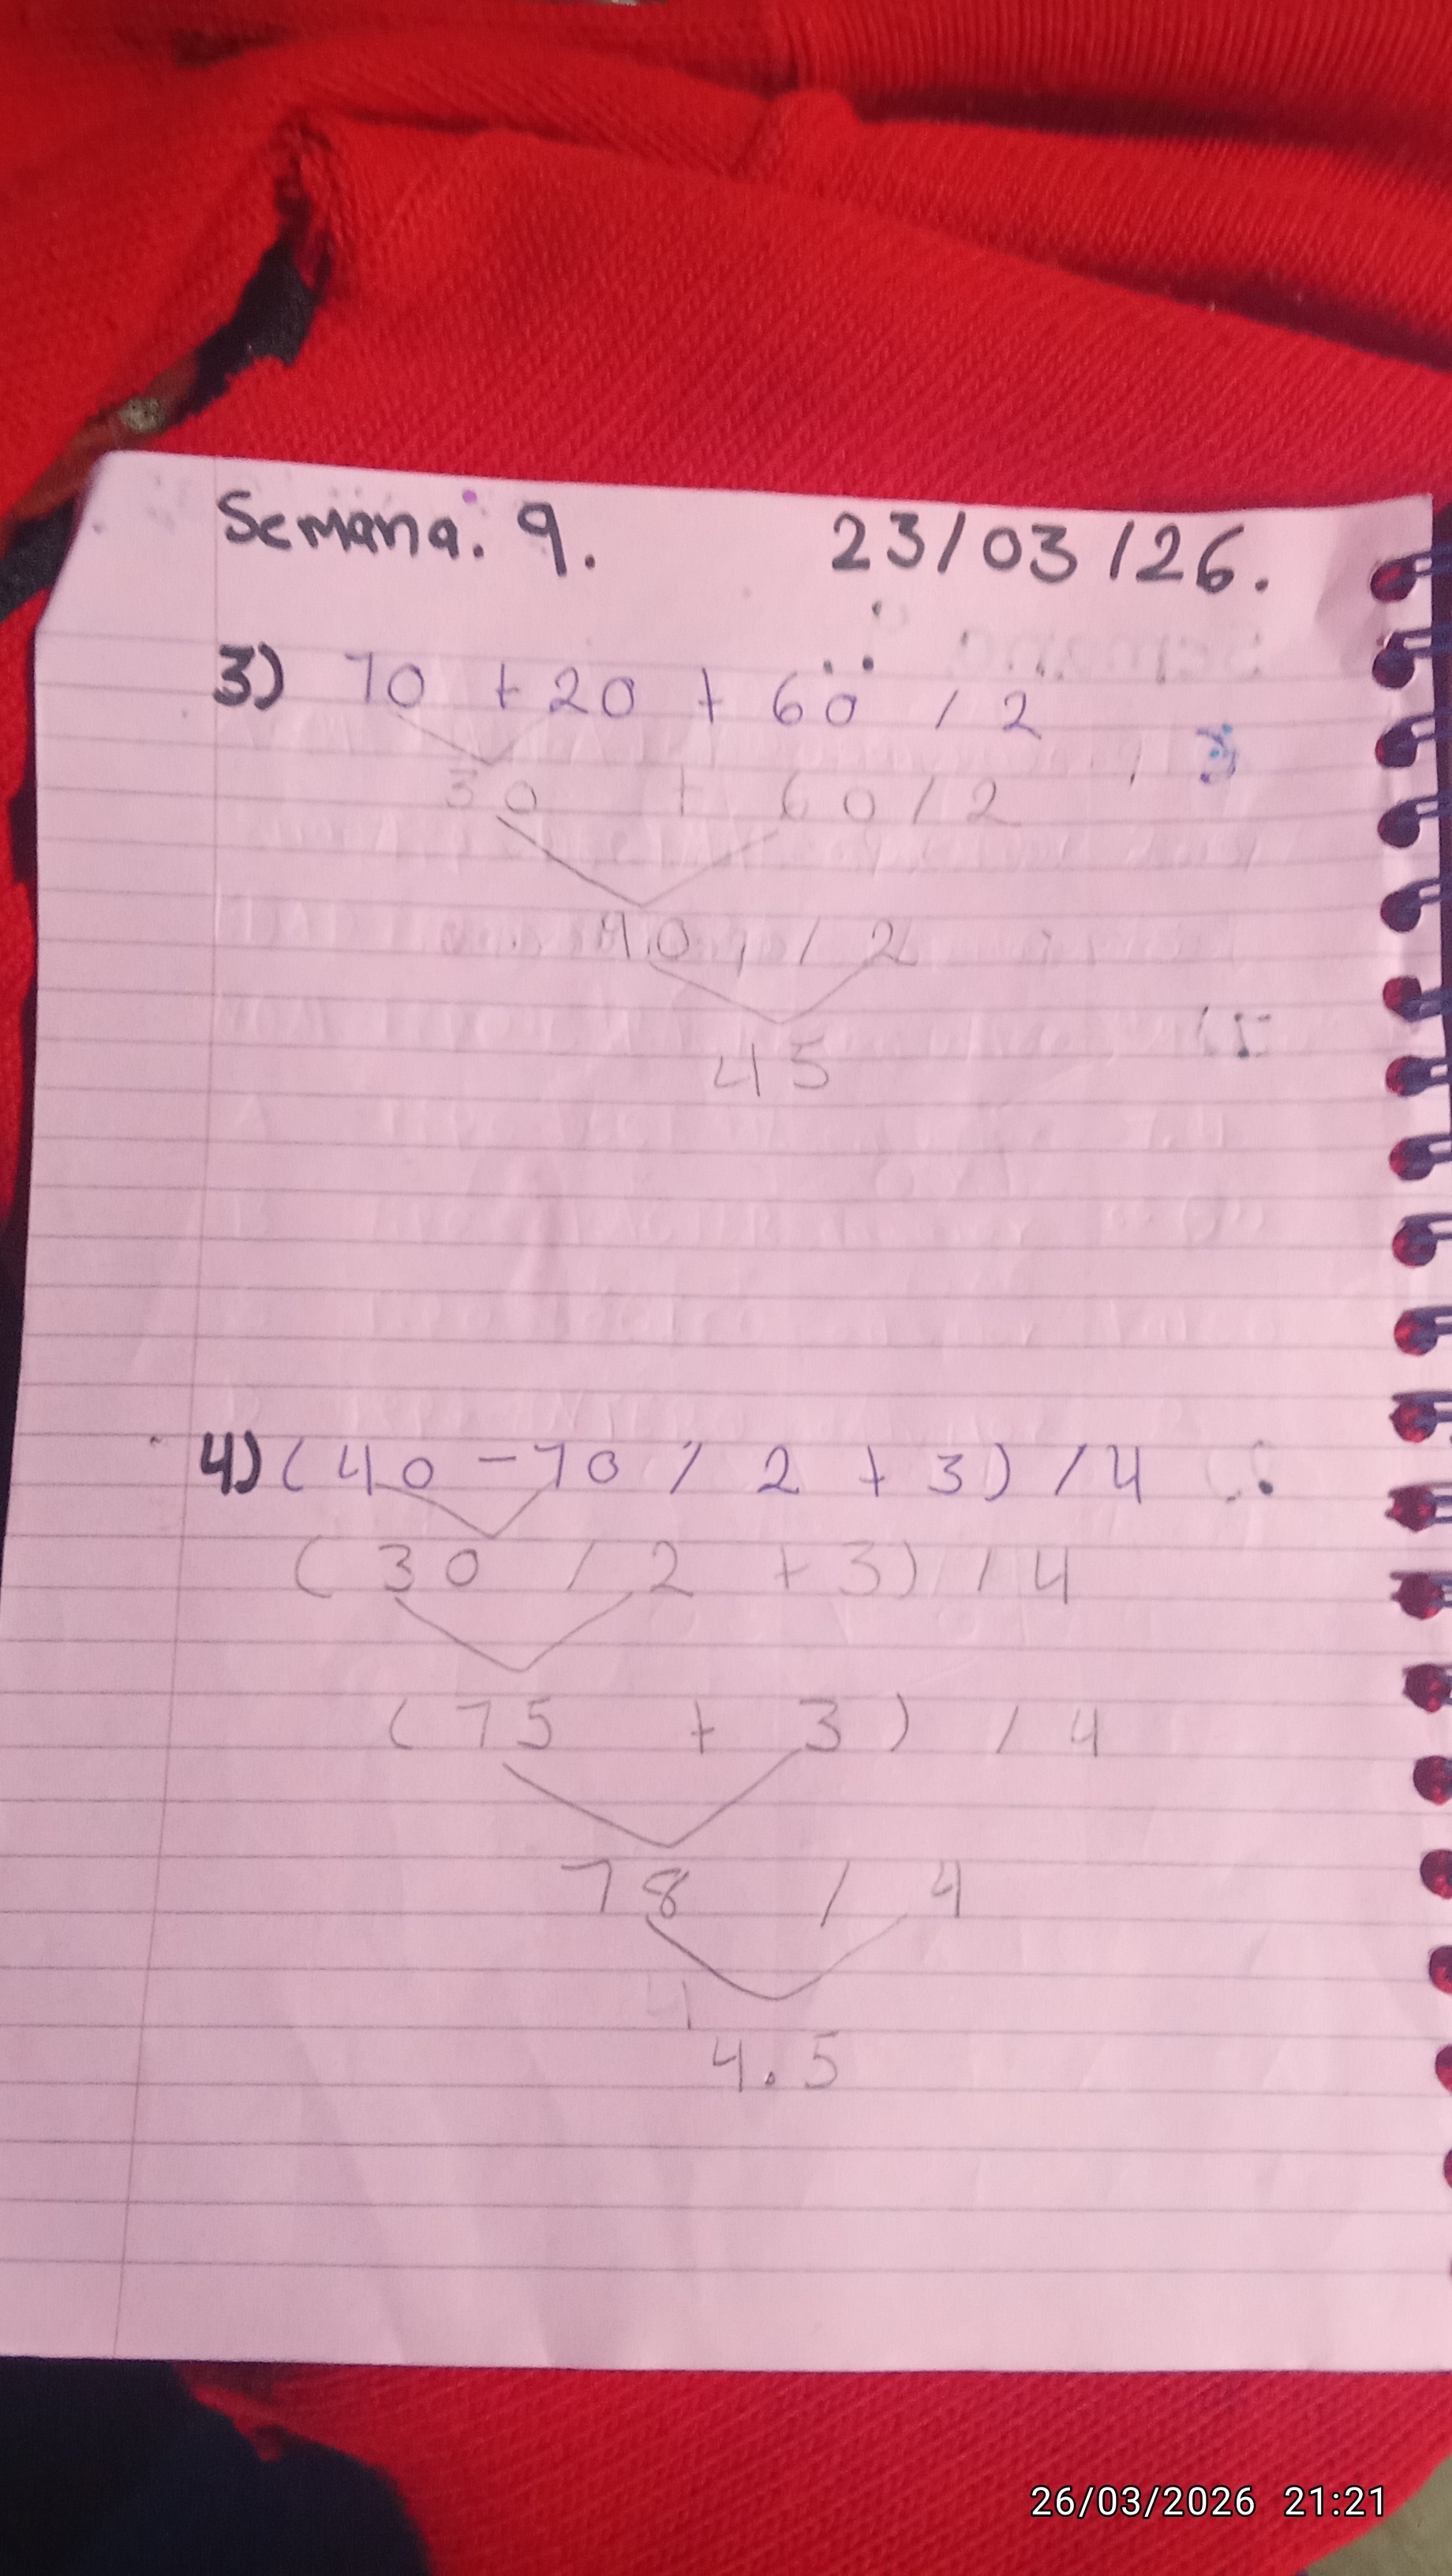 Semana: 9. 23/03/26.
3) 10 + 20 + 60 / 2
30 + 60 / 2
90 / 2
45
4) (40 - 10 / 2 + 3) / 4
(30 / 2 + 3) / 4
(15 + 3) / 4
18 / 4
4
4.5
26/03/2026 21:21